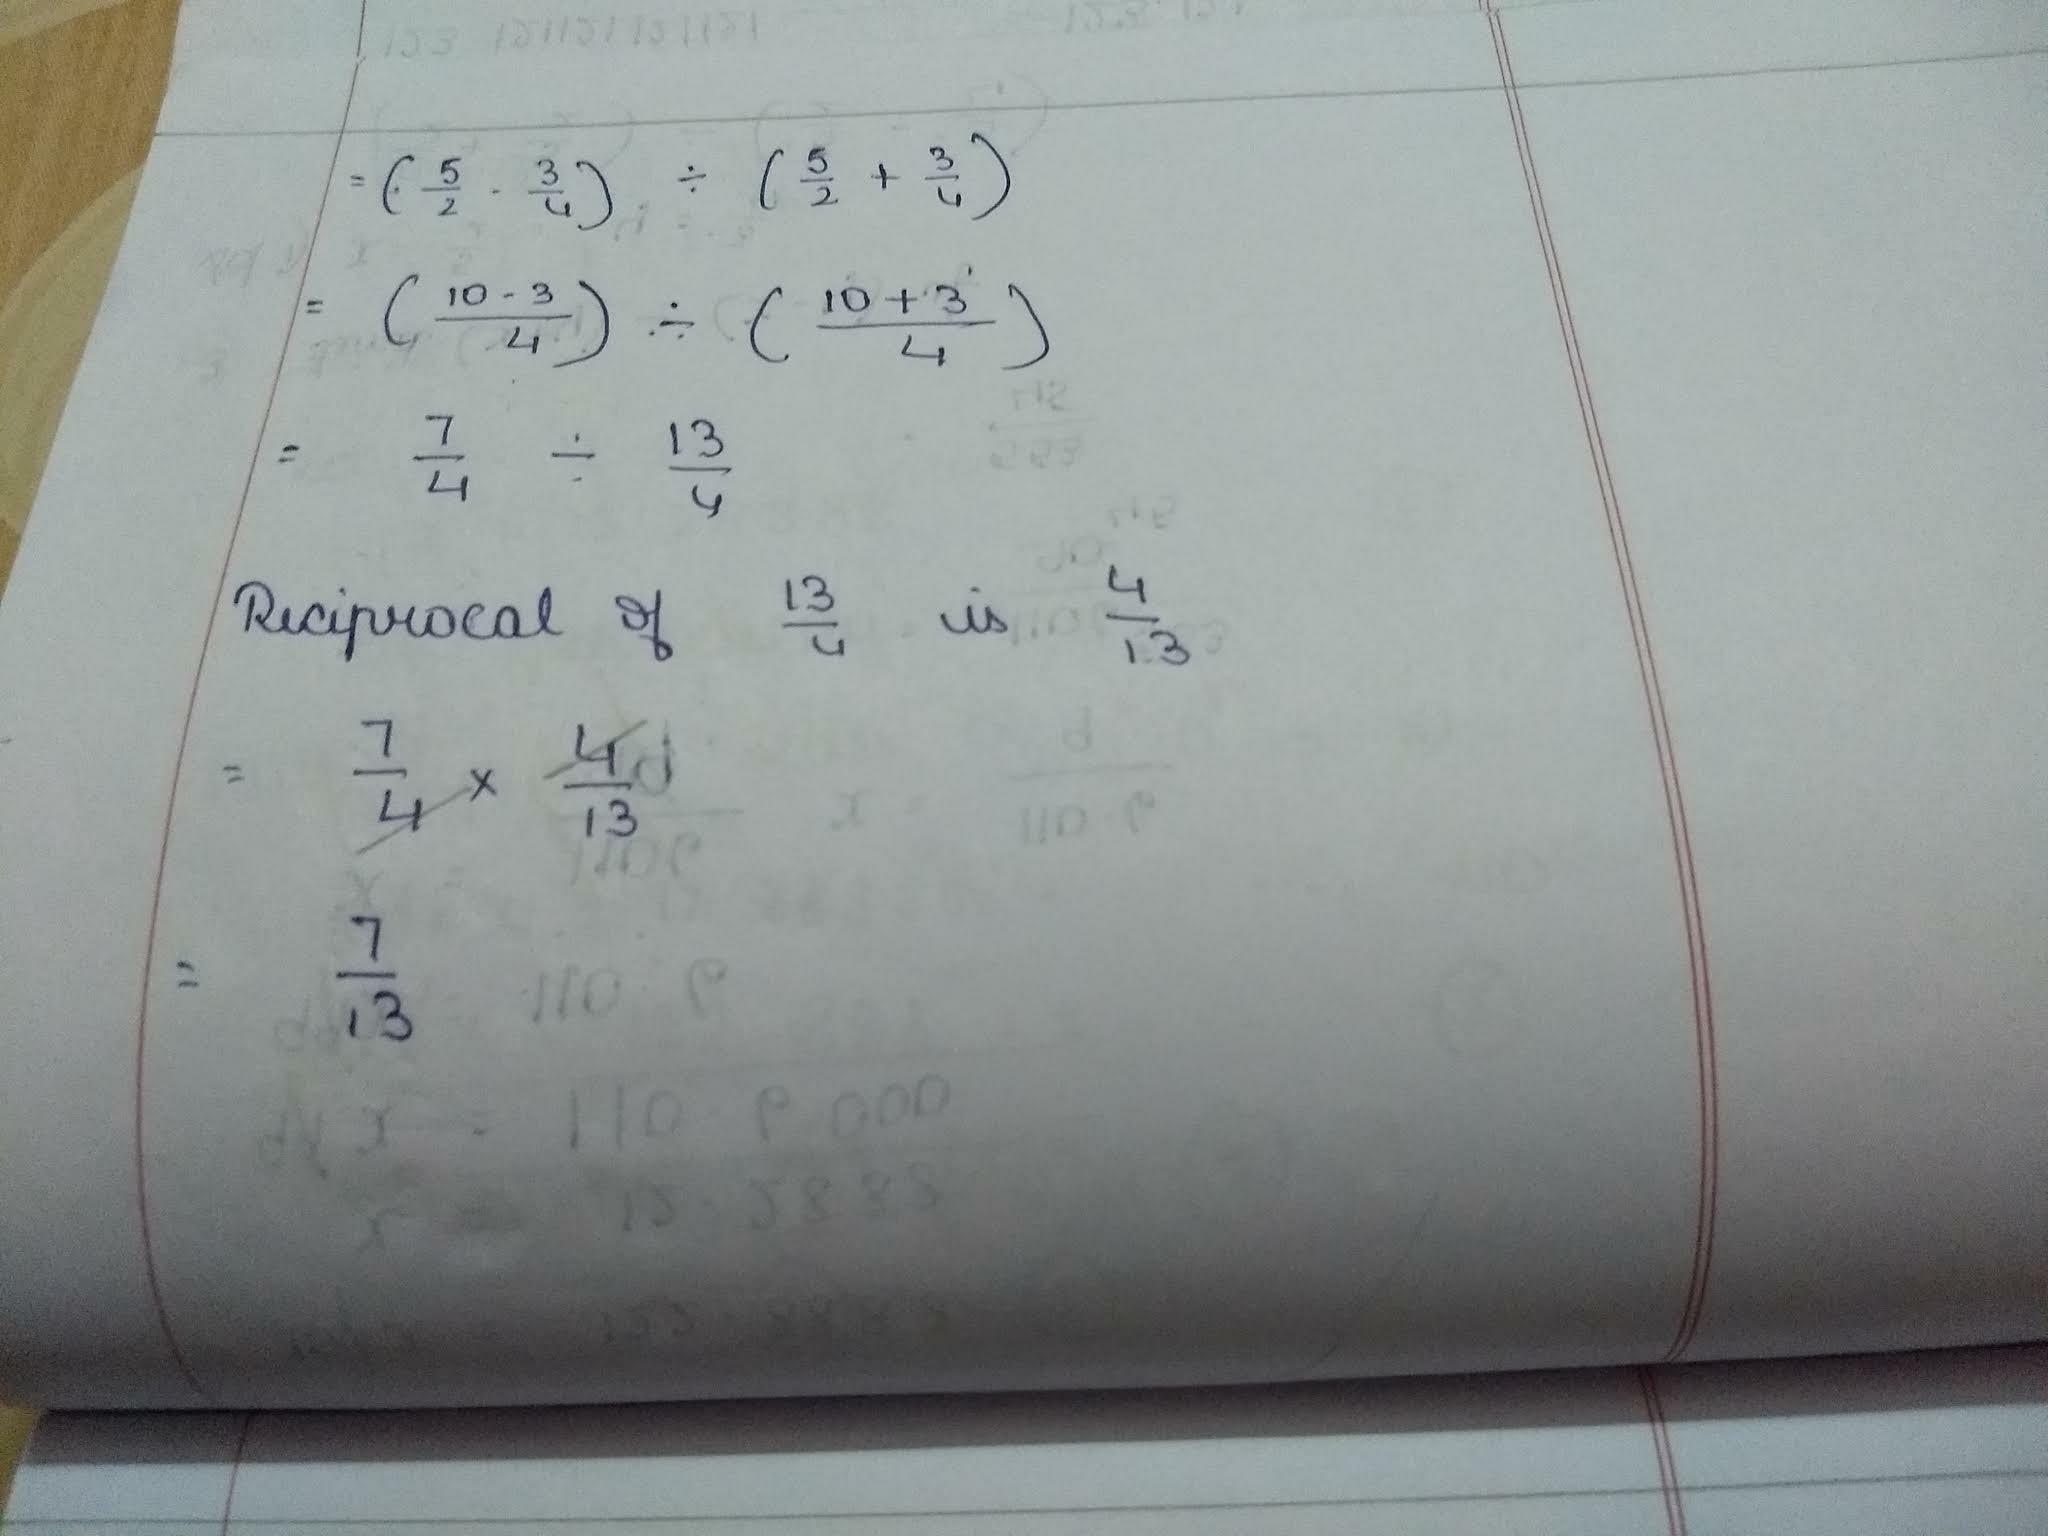 = (5/2 - 3/4) ÷ (5/2 + 3/4)
= (10-3/4) ÷ (10+3/4)
= 7/4 ÷ 13/4
Reciprocal of 13/4 is 4/13
= 7/4 x 4/13
= 7/13